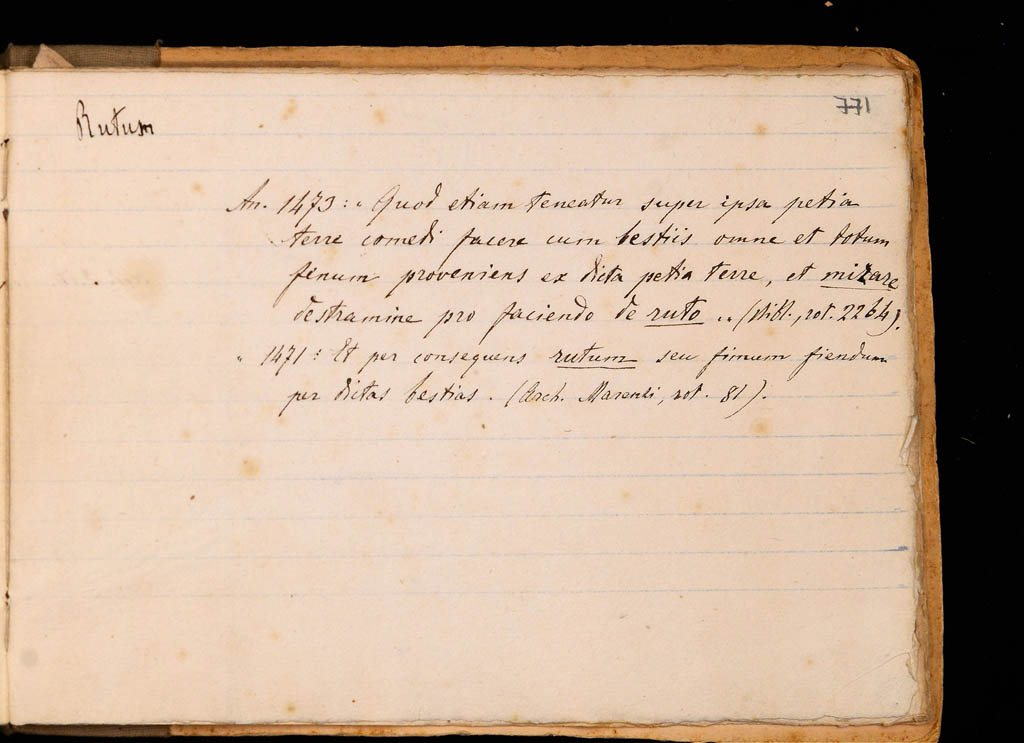 771
Rutum
An. 1473: " Quod etiam teneatur super ipsa petia
terre comedi facere cum bestiis omne et totum
fenum proveniens ex dicta petia terre, et mizare
destramine pro faciendo de ruto .. ( rot. 2264).
" 1471: Et per consequens rutum seu fimum fiendum
per dictas bestias. (Arch. Marenzi, rot. 81).